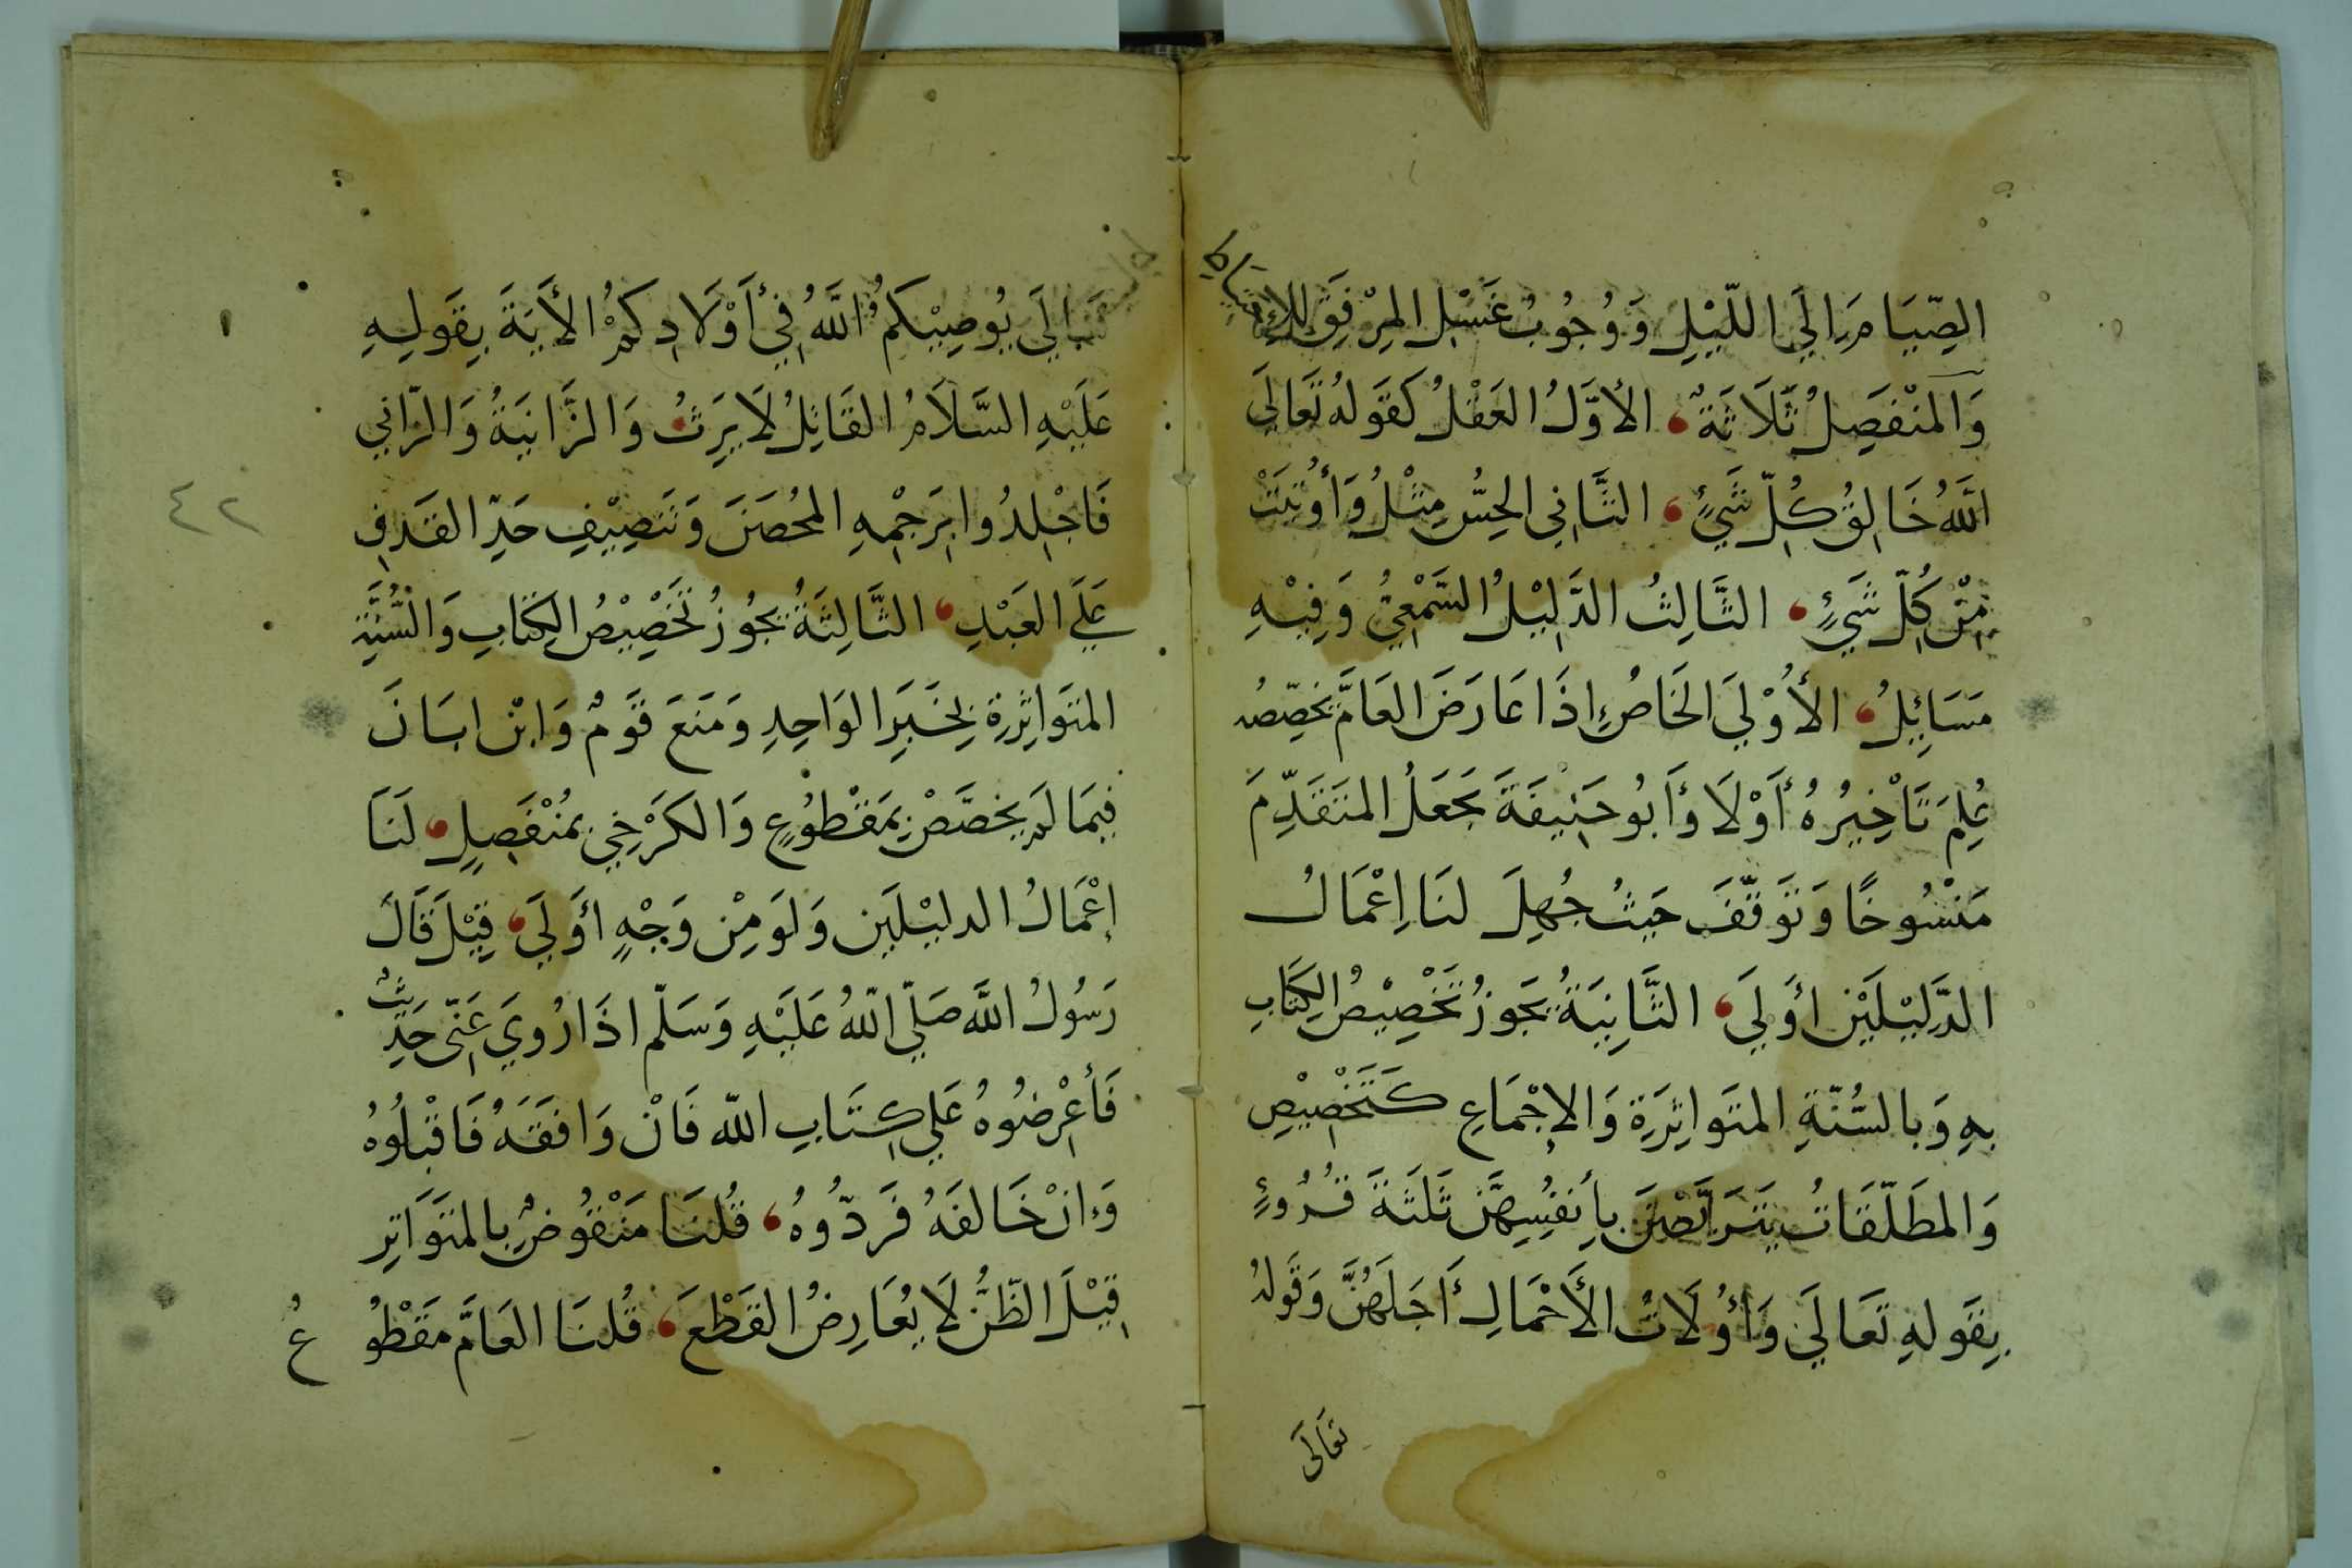 الصِّيَامَ إِلَى اللَّيْلِ وَوُجُوبُ غَسْلِ المِرْفَقِ لِلإِحْتِيَاطِ
وَالمُنْفَصِلُ ثَلَاثَةٌ، الأَوَّلُ العَقْلُ كَقَوْلِهِ تَعَالَى
اللَّهُ خَالِقُ كُلِّ شَيْءٍ، الثَّانِي الحِسُّ مِثْلُ وَأُوتِيَتْ
مِنْ كُلِّ شَيْءٍ، الثَّالِثُ الدَّلِيْلُ السَّمْعِيُّ وَفِيْهِ
مَسَائِلُ، الأُوْلَى الخَاصُّ إِذَا عَارَضَ العَامَّ يُخَصِّصُهُ
عُلِمَ تَأْخِيرُهُ أَوْلَا وَأَبُو حَنِيفَةَ يَجْعَلُ المُتَقَدِّمَ
مَنْسُوخًا وَتَوَقَّفَ حَيْثُ جُهِلَ لَنَا إِعْمَالُ
الدَّلِيْلَيْنِ أَوْلَى، الثَّانِيَةُ يَجُوزُ تَخْصِيْصُ الكِتَابِ
بِهِ وَبِالسُّنَّةِ المُتَوَاتِرَةِ وَالإِجْمَاعِ كَتَخْصِيْصِ
وَالمُطَلَّقَاتُ يَتَرَبَّصْنَ بِأَنْفُسِهِنَّ ثَلَثَةَ قُرُوءٍ
بِقَوْلِهِ تَعَالَى وَأُوْلَاتُ الأَحْمَالِ أَجَلُهُنَّ وَقَوْلِهِ
تَعَالَى
يُوصِيْكُمُ اللَّهُ فِي أَوْلَادِكُمْ الأَيَةَ بِقَوْلِهِ
عَلَيْهِ السَّلَامُ القَاتِلُ لَا يَرِثُ وَالزَّانِيَةُ وَالزَّانِي
فَاجْلِدُوا بِرَجْمِهِ المُحْصَنَ وَتَنْصِيْفِ حَدِّ القَذْفِ
عَلَى العَبْدِ، الثَّالِثَةُ يَجُوزُ تَخْصِيْصُ الكِتَابِ وَالسُّنَّةِ
المُتَوَاتِرَةِ بِخَبَرِ الوَاحِدِ وَمَنَعَ قَوْمٌ وَابْنُ ابَانَ
فِيمَا لَمْ يُخَصَّصْ بِمَقْطُوعٍ وَالكَرْخِي بِمُنْفَصِلٍ، لَنَا
إِعْمَالُ الدلِيْلَيْنِ وَلَوْ مِنْ وَجْهٍ أَوْلَى، قِيْلَ قَالَ
رَسُولُ اللَّهِ صَلَّى اللَّهُ عَلَيْهِ وَسَلَّمَ اذَا رُوِيَ عَنِّي حَدِيثٌ
فَأَعْرِضُوهُ عَلَى كِتَابِ اللَّهِ فَانْ وَافَقَهُ فَاقْبَلُوهُ
وَإِنْ خَالَفَهُ فَرَدُّوهُ، قُلْنَا مَنْقُوضٌ بِالمُتَوَاتِرِ
قِيْلَ الظَّنُّ لَا يُعَارِضُ القَطْعَ، قُلْنَا العَامُّ مَقْطُوعُ
٤٢